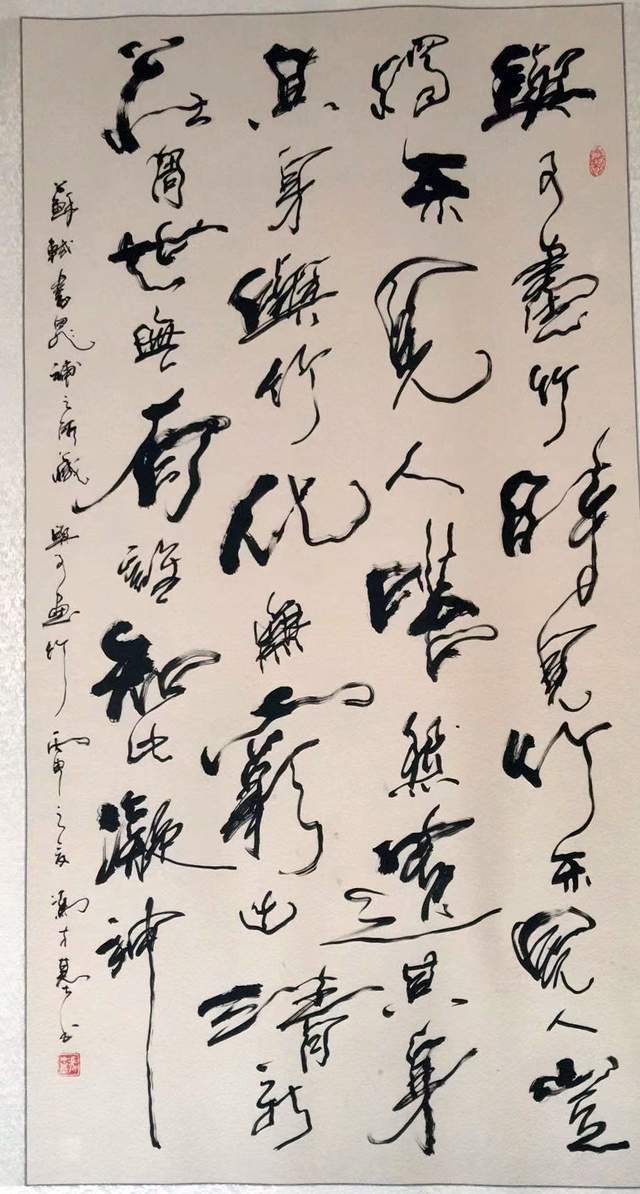 與可畫竹時見竹不見人豈
獨不見人嗒然遺其身
其身與竹化無窮出清新
莊周世無有誰知此凝神
蘇軾書晁補之所藏與可畫竹 丙申之